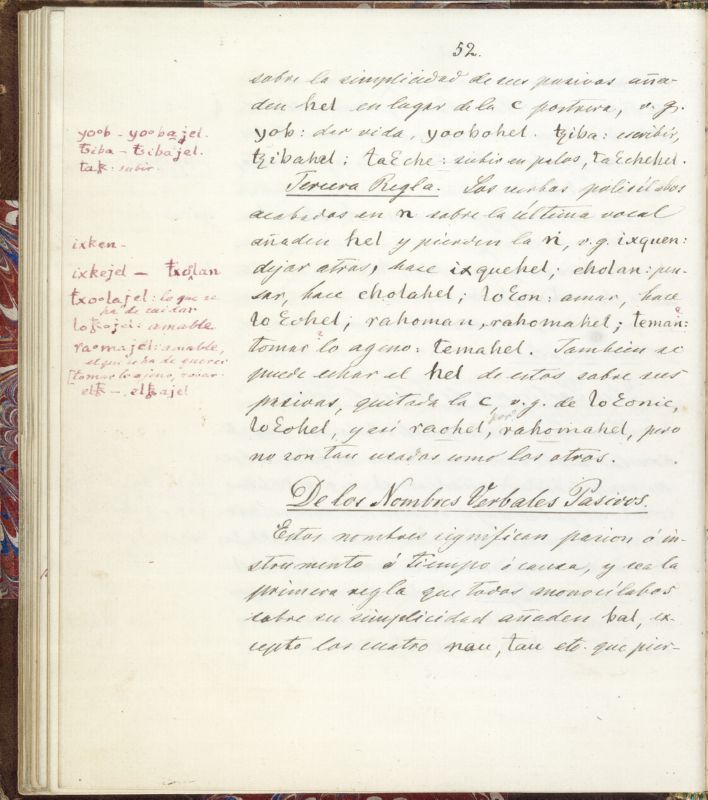 52.
sobre la simplicidad de sus pasivos aña-
den hel en lugar de la c postrera, v. g.
yob: dar vida, yoobohel. tziba: escribir,
tzibahel; taɛche: subir en palos, taɛchehel.
Tercera Regla. Los verbos polisílabos
acabados en n sobre la última vocal
añaden hel y pierden la n, v. g. ixquen:
dejar atras, hace ixquehel; cholan: pen-
sar, hace cholahel; loɛon: amar, hace
loɛohel; rahoman, rahomahel; teman:
tomar lo ageno: temahel. Tambien se
puede echar el hel de estos sobre sus
pasivos, quitada la c, v. g. de loɛonic,
loɛohel, y asi raohel, por rahomahel, pero
no son tan usados como los otros.
De los Nombres Verbales Pasivos.
Estos nombres significan pasion ó in-
strumento ó tiempo ó causa, y sea la
primera regla que todos monosílabos
sobre su simplicidad añaden bal, ex-
cepto los cuatro nau, tau etc. que pier-
yoob - yoobajel.
ŧziba - ŧzibajel.
tak: subir.
ixken -
ixkejel - ŧxolan
ŧxoolajel: lo que se
ha de cuidar
lokojel: amable
raomajel: amable,
el qui ha de querer
[tomar lo ajeno, robar.
elk - elkajel